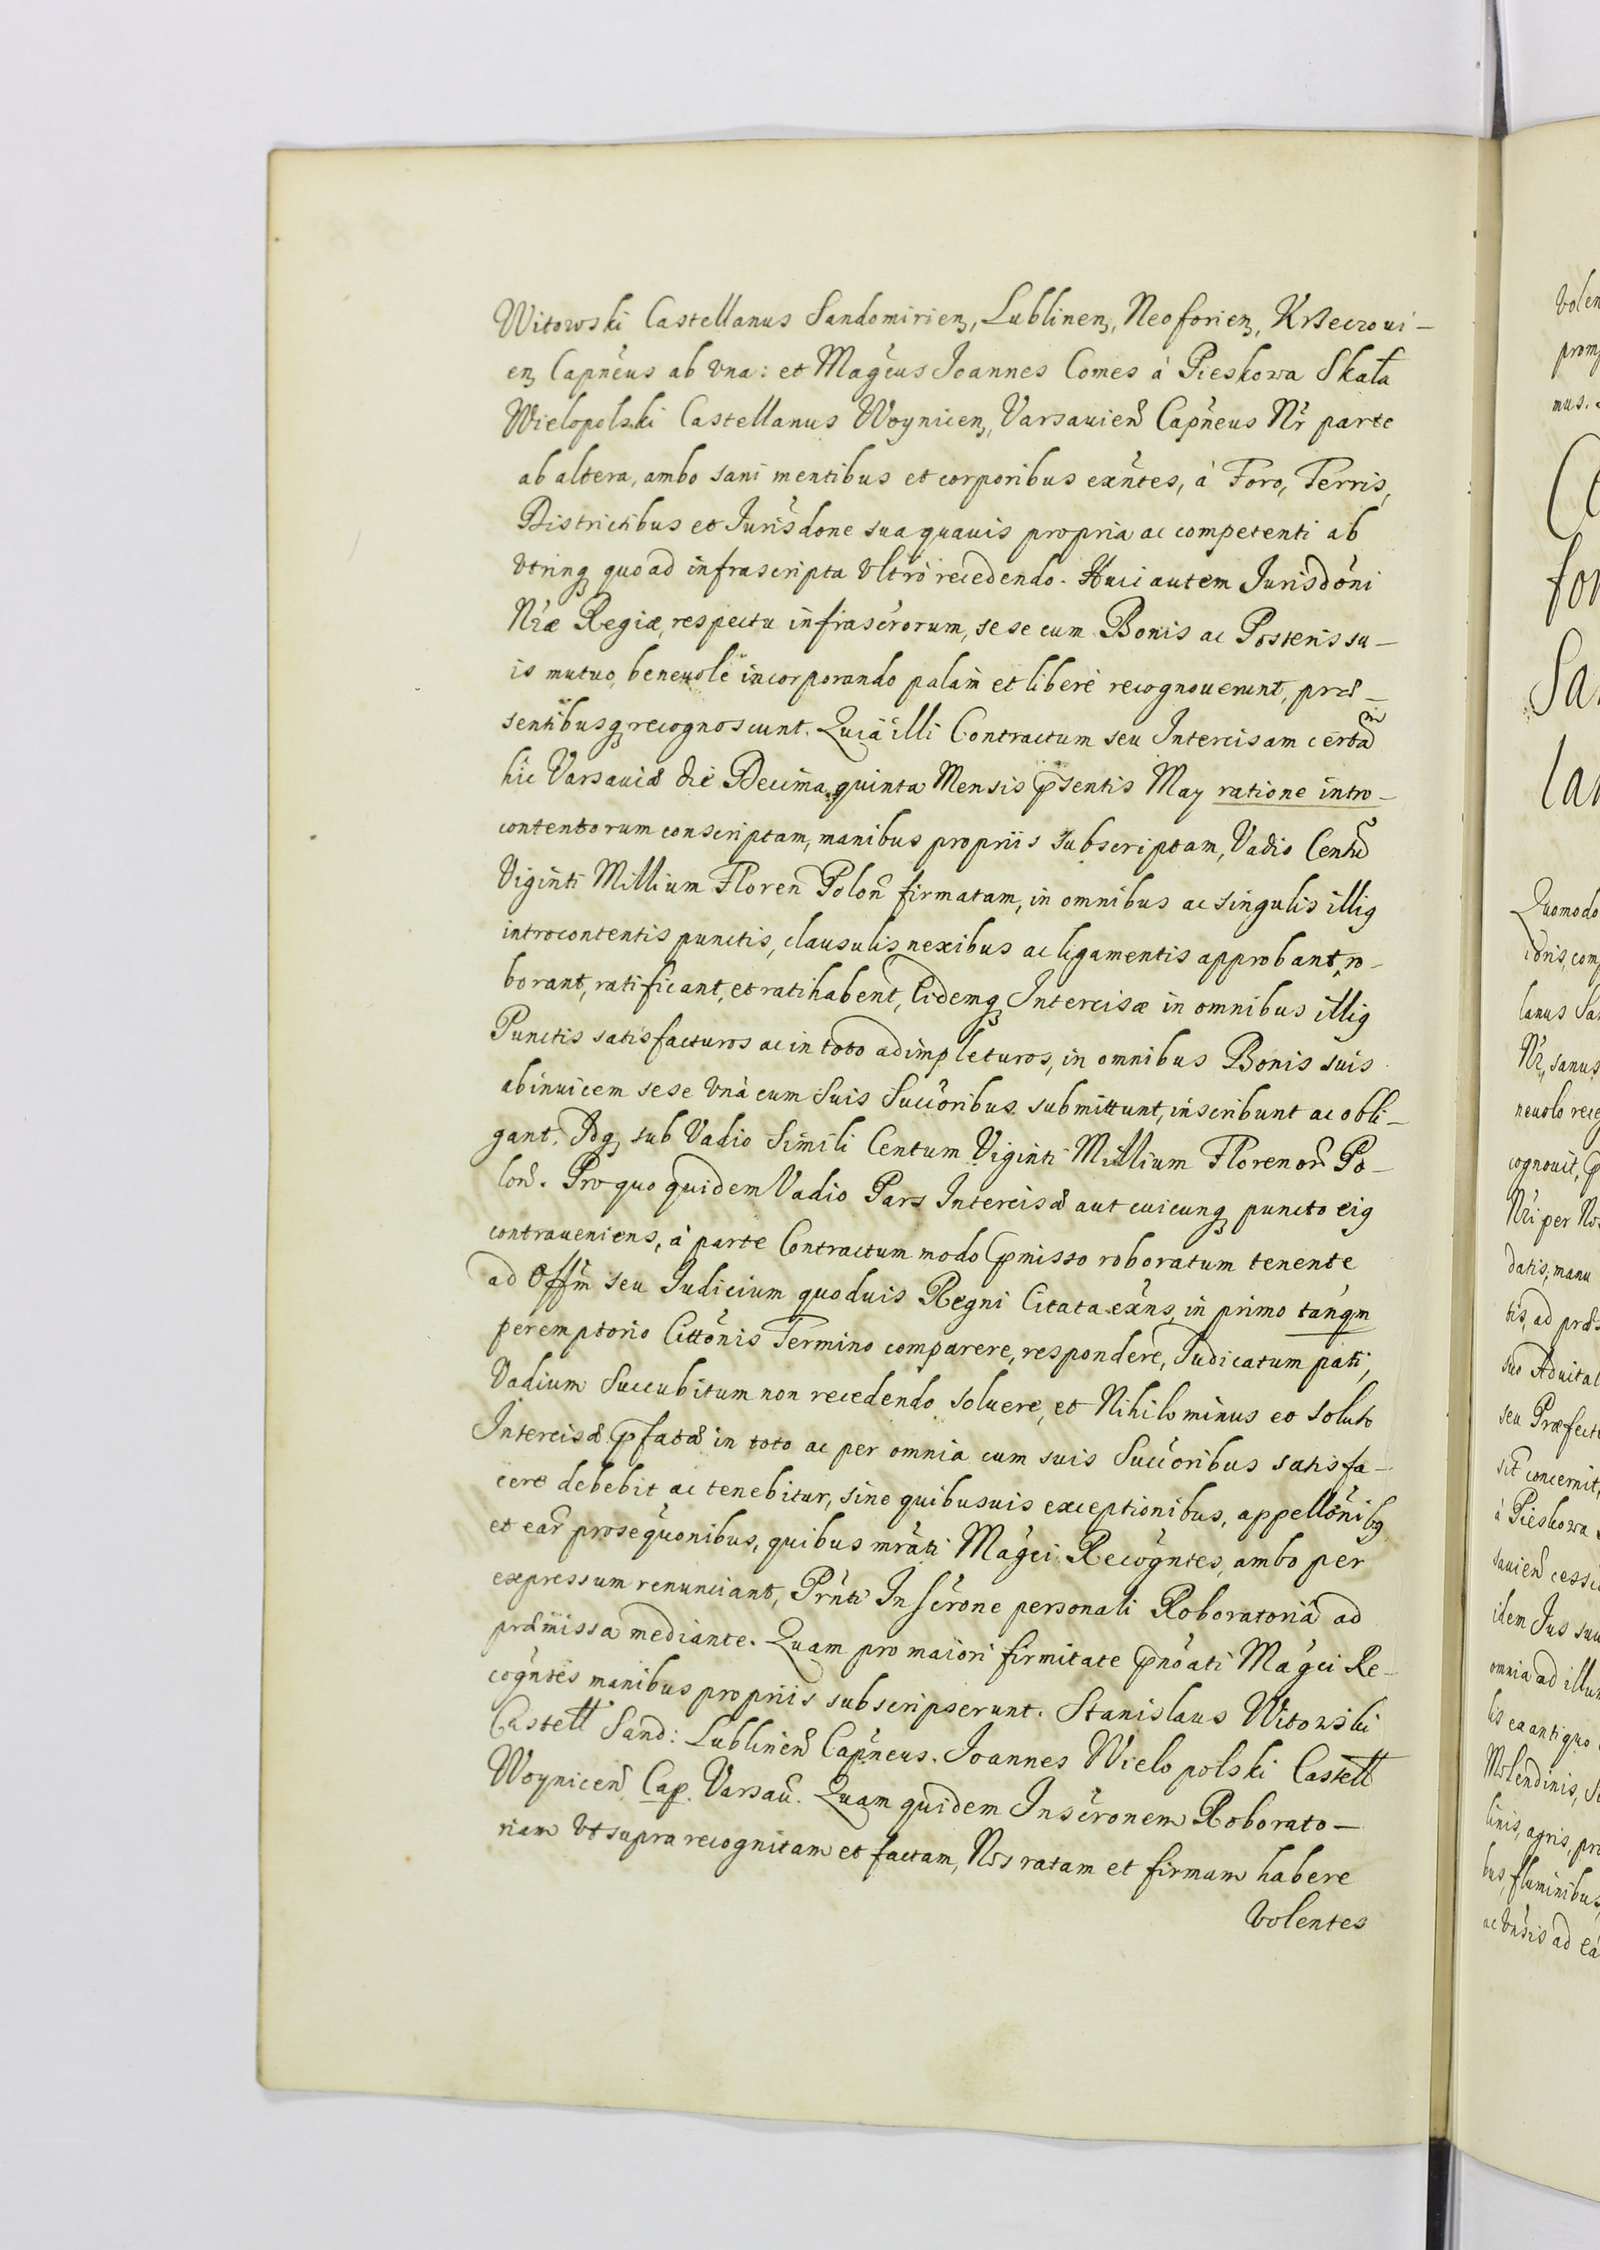 Witowski Castellanus Sandomirien, Lublinen, Neoforien, Krzeczoui-
en Capneus ab vna: et Magcus Joannes Comes à Pieskowa Skała
Wielopolski Castellanus Woynicen, Varsauien Capneus Nr parte
ab altera, ambo sani mentibus et corporibus exntes, à Foro, Terris,
Districtibus et Jurisdone sua quauis propria ac competenti ab
vtrinq quoad infrascripta vltrò recedendo. Huic autem Jurisdoni
Nræ Regiæ, respectu infrascrorum, sese cum Bonis ac Posteris su-
is mutuo, beneuole incorporando palam et liberè recognouerunt, præ-
sentibusq recognoscunt. Quia illi Contractum seu Intercisam certam
hic Varsauiæ die Decima quinta Mensis psentis May ratione intro-
contentorum conscriptam, manibus propriis subscriptam, Vadio Centu
Viginti Millium Floren Polon firmatam, in omnibus ac singulis illig
introcontentis punctis, clausulis nexibus ac ligamentis approbant, ro-
borant, ratificant, et ratihabent, Eidemq Intercisæ in omnibus illig
Punctis satisfacturos ac in toto adimpleturos, in omnibus Bonis suis
abinuicem sese vnà cum Suis Succoribus submittunt, inscribunt ac obli-
gant. Idq sub Vadio Simili Centum Viginti Millium Florenor Po-
lon. Pro quo quidem Vadio Pars Intercisæ aut cuicunq puncto eig
contraueniens, à parte Contractum modo pmisso roboratum tenente
ad Offm seu Judicium quoduis Regni Citata exns, in primo tanqm
peremptorio Cittonis Termino comparere, respondere, Judicatum pati,
Vadium Succubitum non recedendo soluere, et Nihilominus eo soluto
Intercisæ pfatæ in toto ac per omnia cum suis Succoribus satisfa-
cere debebit ac tenebitur, sine quibusuis exceptionibus, appellonibg
et ear prosequonibus, quibus mrati Magci Recogntes, ambo per
expressum renunciant, Prnti Inscrone personali Roboratoria ad
præmissa mediante. Quam pro maiori firmitate pnoati Magci Re-
cogntes manibus propriis subscripserunt. Stanislaus Witowski
Castell Sand: Lublinen Capneus. Joannes Wielopolski Castell
Woynicen Cap. Varsau. Quam quidem Inscronem Roborato-
riam vt supra recognitam et factam, Nos ratam et firmam habere
volentes